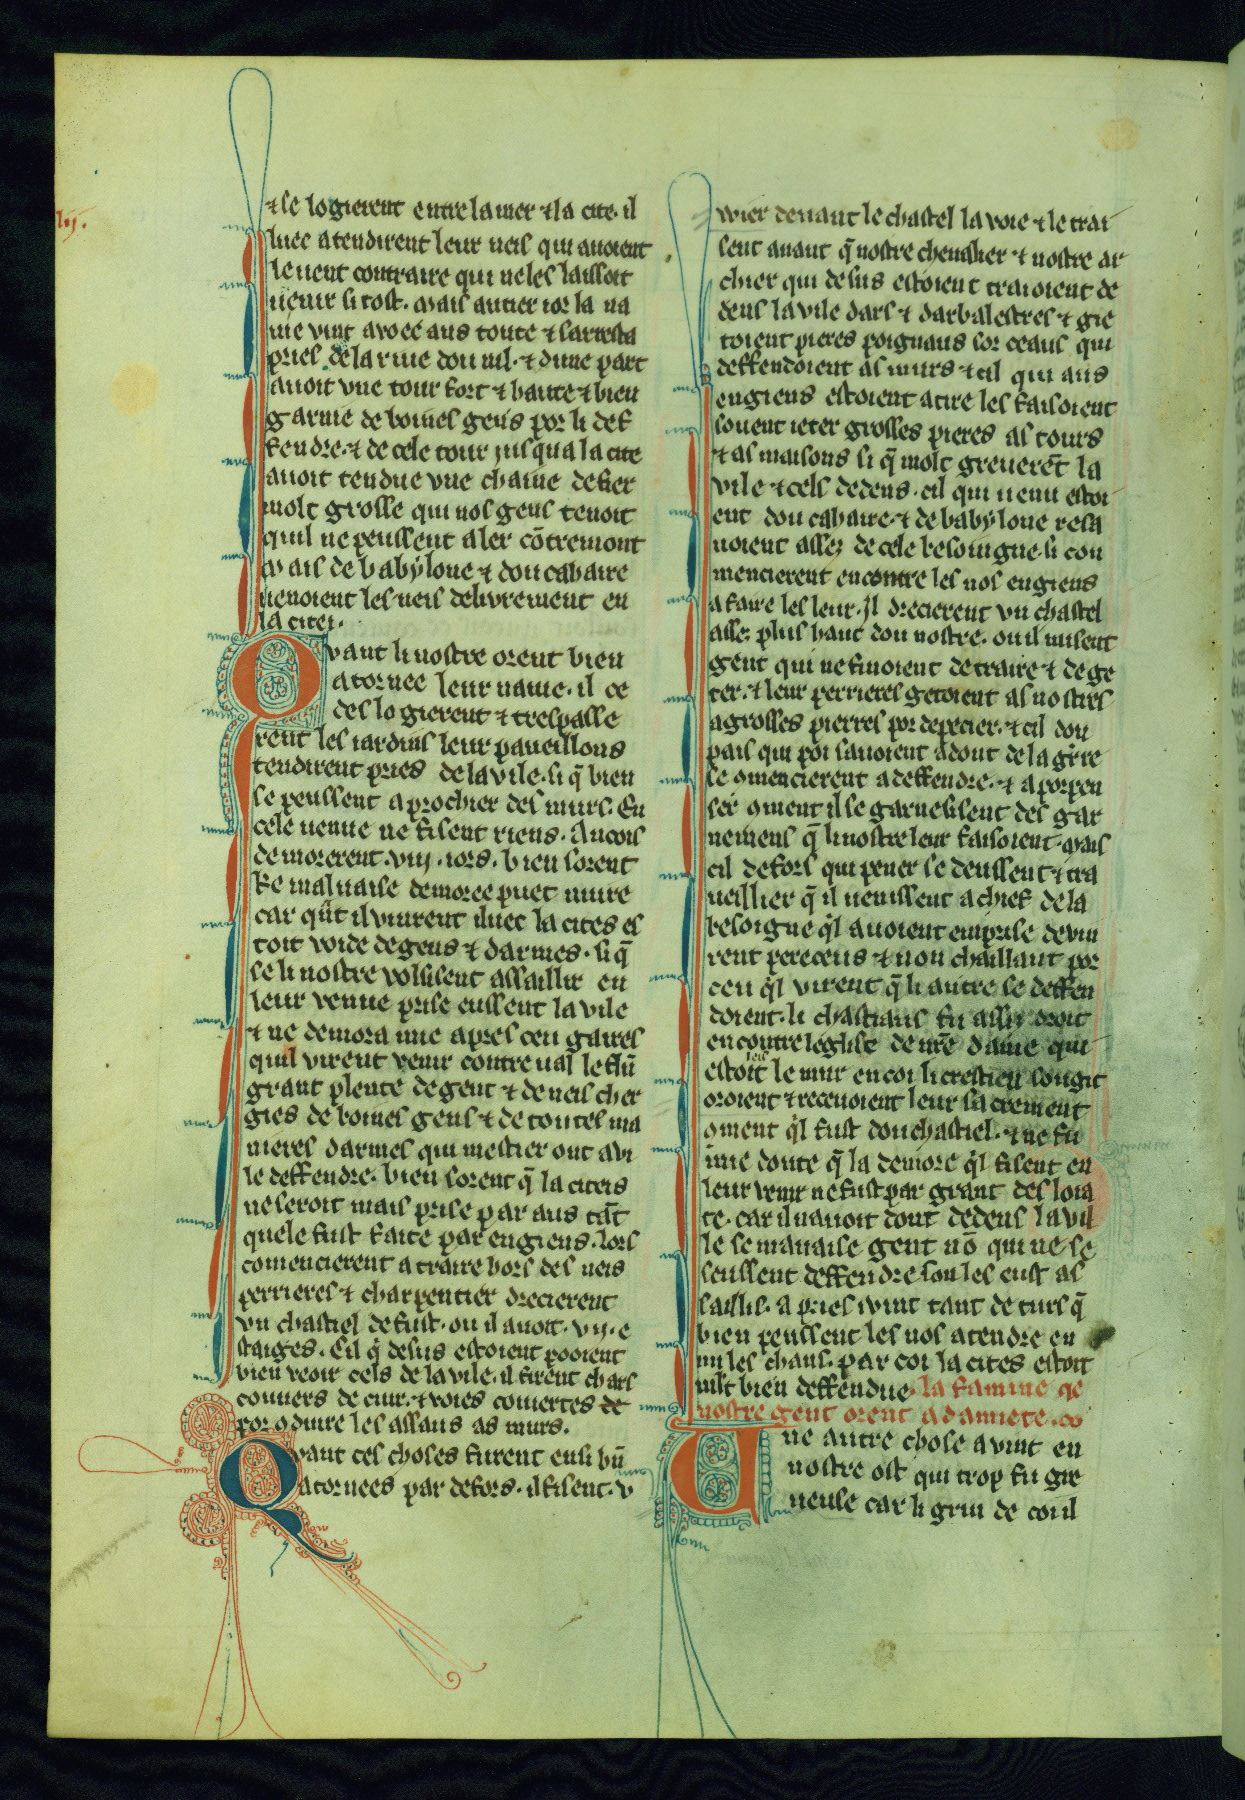 lij.
⁊ se logierent entre la mer ⁊ la cite. il
luec atendirent leur neis qui auoient
le uent contraire qui ne les laissoit
uenir si tost. Mais au tier ior la na
uie vint avoec aus toute ⁊ sarresta
pries de la riue dou nil. ⁊ dune part
auoit vne tour fort ⁊ haute ⁊ bien
garnie de boines gens por li def
fendre. ⁊ de cele tour jusqua la cite
auoit tendue vne chaine de fier
molt grosse qui nos gens tenoit
quil ne peussent aler cōtremont
Mais de babyloue ⁊ dou cahaire
uenoient les neis delivrement en
la citei.
Qvant li nostre orent bien
atornee leur nauie. il ce
des logierent ⁊ trespasse
rent les iardins leur paueillons
tendirent pries de la vile. si q̄ bien
se peussent aprochier des murs. En
cele uenue ne fisent riens. Aucois
demorerent .viij. iors. bien sorent
ke maluaise demoree puet nuire
car qūt il vinrent iluec la cites es
toit voide de gens ⁊ darmes. si q̄
se li nostre volsisent assaillir en
leur venue prise eussent la vile
⁊ ne demora mie apres ceu gaires
quil virent venir contreual le flū
grant plente de gent ⁊ de neis cher
gies de boines gens ⁊ de toutes ma
nieres darmes qui mestier ont a vi
le deffendre. bien sorent q̄ la citeis
ne seroit mais prise par aus tāt
quele fust faite par engiens. lors
comencierent a traire hors des neis
perrieres ⁊ charpentier drecierent
vn chastiel de fust. ou il auoit .vij. e
staiges. Cil q̄ desus estoient pooient
bien veoir cels de la vile. il firent chars
couuers de cuir. ⁊ voies couuertes de
por 9duire les assaus as murs.
Qvant ces choses furent ensi bn̄
atornees par defors. il fisent. v
wier deuant le chastel la voie ⁊ le trai
sent auant q̄ nostre cheualier ⁊ nostre ar
chier qui desus estoient traioient de
dens la vile dars ⁊ darbalestres ⁊ gie
toient pieres poignaus sor ceaus qui
deffendoient as murs ⁊ cil qui aus
engiens estoient atire les faisoient
souent ieter grosses pieres as tours
⁊ as maisons si q̄ molt greuerēt la
vile ⁊ cels dedens. cil qui uenu estoi
ent dou cahaire. ⁊ de babyloue resa
uoient assez de cele besoingne. si con
mencierent encontre les nos engiens
a faire les leur. Jl drecierent vn chastel
assez plus haut dou nostre. ou il misent
gent qui ne finoient de traire ⁊ de ge
ter. ⁊ leur perrieres getoient as nostres
a grosses pierres por depecier. ⁊ cil dou
pais qui poi sauoient adont de la gẽre
se 9mencierent a deffendre. ⁊ a porpen
ser 9ment il se garnesisent des gar
nemens q̄ li nostre leur faisoient. Mais
cil defors qui pener se deussent ⁊ tra
ueillier q̄ il uenissent a chief de la
besoigue q̄l auoient emprise deuin
rent pereceus ⁊ non chaillant por
ceu q̄l virent q̄ li autre se deffen
doient. li chastiaus fu assis droit
encoutre leglise de nr̄e dame qui
estoit leis le mur en coi li crestien songit
oroient ⁊ receuoient leur sacrement
9ment q̄l fust dou chastiel. ⁊ ne fu
mie doute q̄ la demore q̄l fisent en
leur venir ne fust par grant desloia
te. car il nauoit dont dedens la vil
le se mauaise gent nō qui ne se
seussent deffendre son les eust as
saillis. apries i vint tant de turs q̄
bien peussent les nos atendre en
mi les chans. par coi la cites estoit
mlt bien deffendue. la famine qe
nostre gent orent a damiete. co
Une autre chose auint en
nostre ost qui trop fu gre
ueuse car li griu de coi il